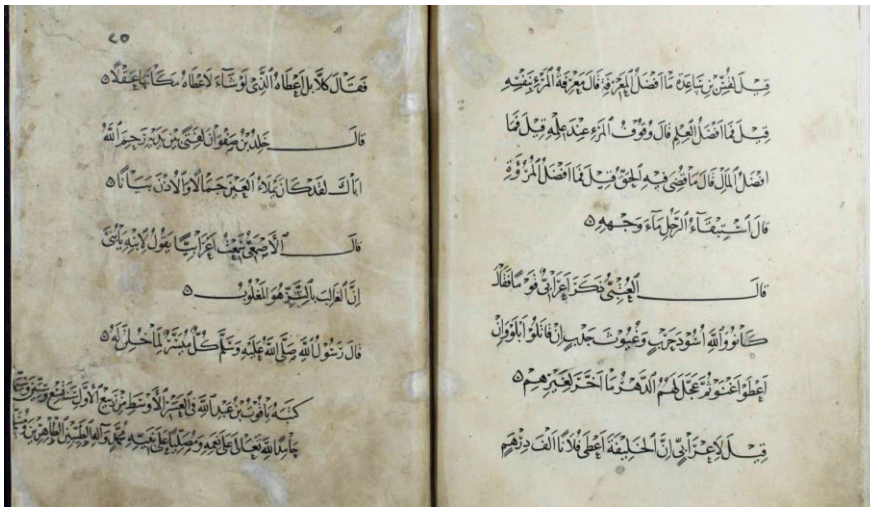 قيل لقس بن ساعدة ما افضل المعرفة قال معرفة المرء بنفسه
قيل فما افضل العلم قال وقوف المرء عند علمه قيل فما
افضل المال قال ما قضى فيه الحق قيل فما افضل المروة
قال استبقاء الرجل ماء وجهه
قال العتبي ذكر اعرابي قوما فقال
كانوا والله اسود حرب وغيوث جدب ان قاتلوا ابلوا وان
اعطوا اغنوا ثم عجل لهم الدهر ما اخر لغيرهم
قيل لاعرابي ان الخليفة اعطى فلانا الف درهم
فقال كلا بل اعطاه الذي لو شاء لاعطاه مكانها عقلا
قال خلد بن صفوان لفتى بين يديه رحم الله
اباك لقد كان يملاء العين جمالا والاذن بيانا
قال الاصمعي سمعت اعرابيا يقول لابنه يا بني
ان الغالب بالشر هو المغلوب
قال رسول الله صلى الله عليه وسلم كل ميسر لما خلق له
كتبه ياقوت بن عبد الله في العشر الاوسط من ربيع الاول سنة تسع وستين
حامدا لله تعالى على نعمه ومصليا على نبيه محمد وآله الطيبين الطاهرين